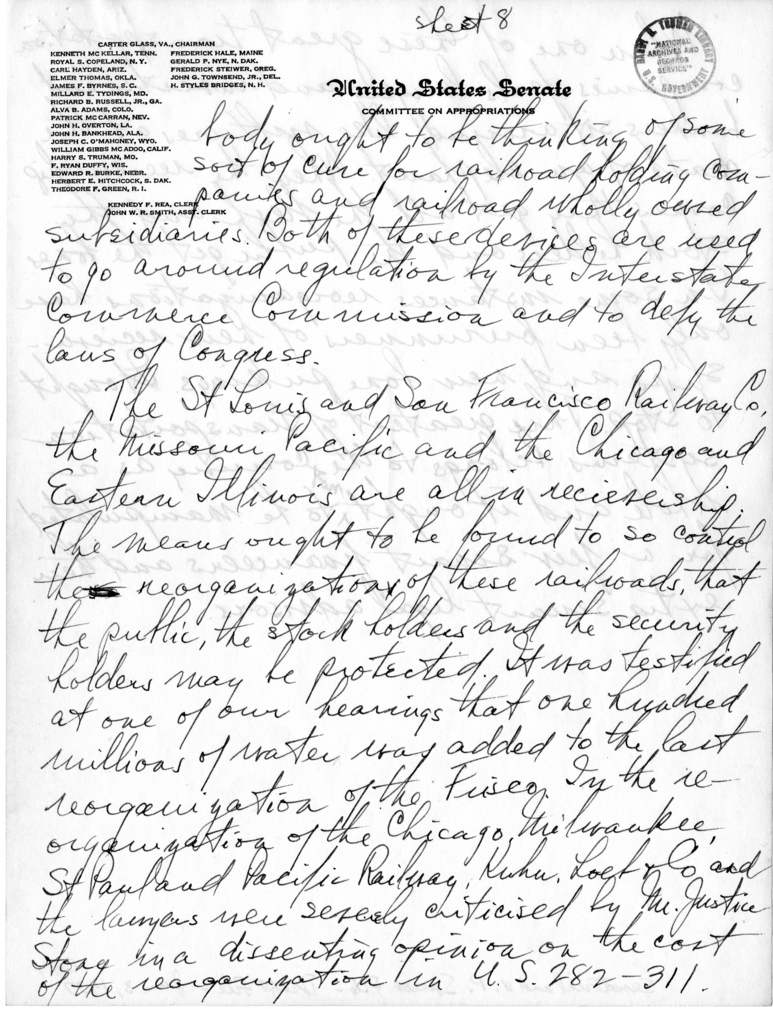 sheet 8
CARTER GLASS, VA., CHAIRMAN
KENNETH MC KELLAR, TENN. FREDERICK HALE, MAINE
ROYAL S. COPELAND, N. Y. GERALD P. NYE, N. DAK.
CARL HAYDEN, ARIZ. FREDERICK STEIWER, OREG.
ELMER THOMAS, OKLA. JOHN G. TOWNSEND, JR., DEL.
JAMES F. BYRNES, S. C. H. STYLES BRIDGES, N. H.
MILLARD E. TYDINGS, MD.
RICHARD B. RUSSELL, JR., GA.
ALVA B. ADAMS, COLO.
PATRICK MC CARRAN, NEV.
JOHN H. OVERTON, LA.
JOHN H. BANKHEAD, ALA.
JOSEPH C. O'MAHONEY, WYO.
WILLIAM GIBBS MC ADOO, CALIF.
HARRY S. TRUMAN, MO.
F. RYAN DUFFY, WIS.
EDWARD R. BURKE, NEBR.
HERBERT E. HITCHCOCK, S. DAK.
THEODORE F. GREEN, R. I.
KENNEDY F. REA, CLERK
JOHN W. R. SMITH, ASST. CLERK
HARRY S. TRUMAN LIBRARY
"NATIONAL
ARCHIVES AND
RECORDS
SERVICE"
U.S. GOVERNMENT
United States Senate
COMMITTEE ON APPROPRIATIONS
body ought to be thinking of some
sort of cure for railroad holding com-
panies and railroad wholly owned
subsidiaries. Both of these devices are used
to go around regulation by the Interstate
Commerce Commission and to defy the
laws of Congress.
The St Louis and San Francisco Railway Co,
the Missouri Pacific and the Chicago and
Eastern Illinois are all in recievership.
The means ought to be found to so control
the reorganizations of these railroads, that
the public, the stock holders and the security
holders may be protected. It was testified
at one of our hearings that one hundred
millions of water was added to the last
reorganization of the Frisco. In the re-
organization of the Chicago, Milwaukee,
St Paul and Pacific Railway, Kuhn, Loeb & Co, and
the lawyers were severly criticised by Mr. Justice
Stone in a dissenting opinion on the cost
of the reorganization in U.S. 282-311.